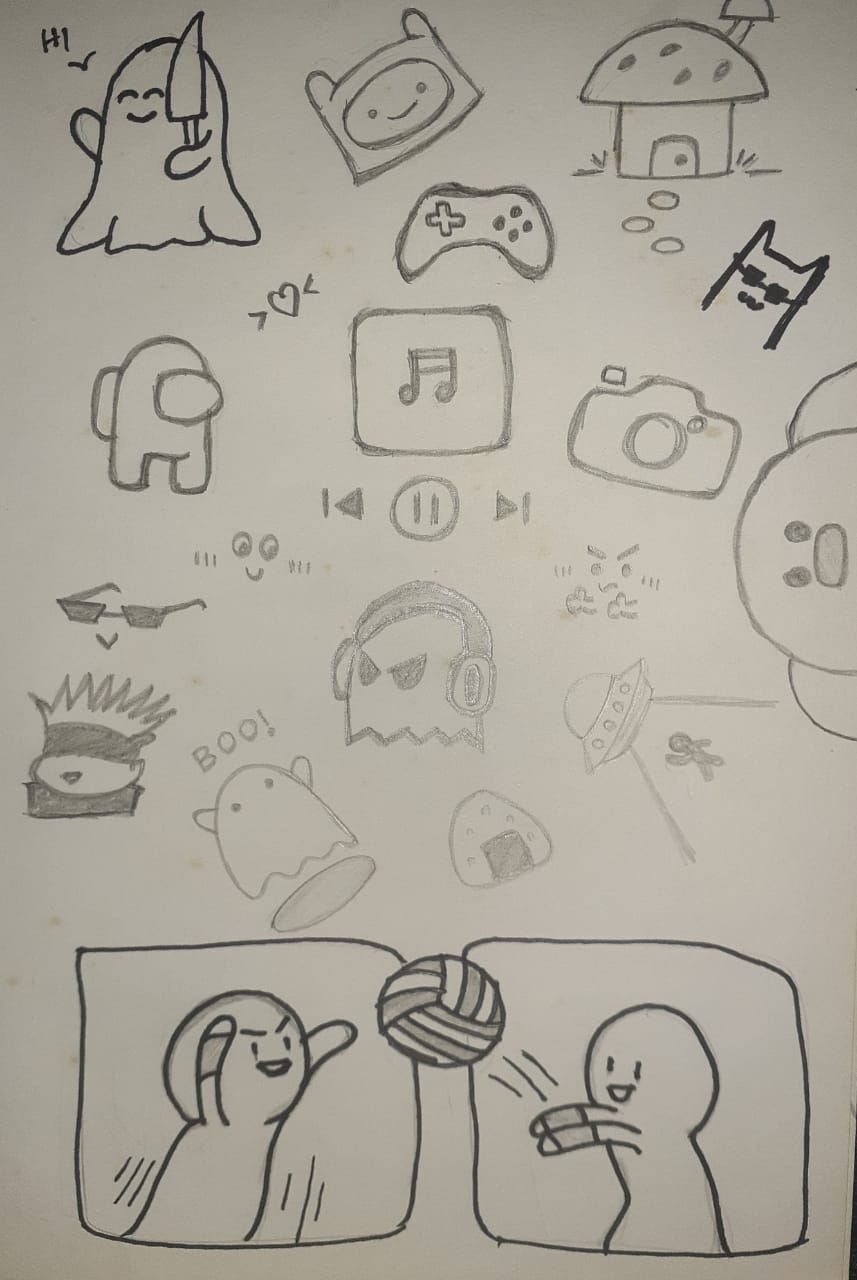 HI
BOO!